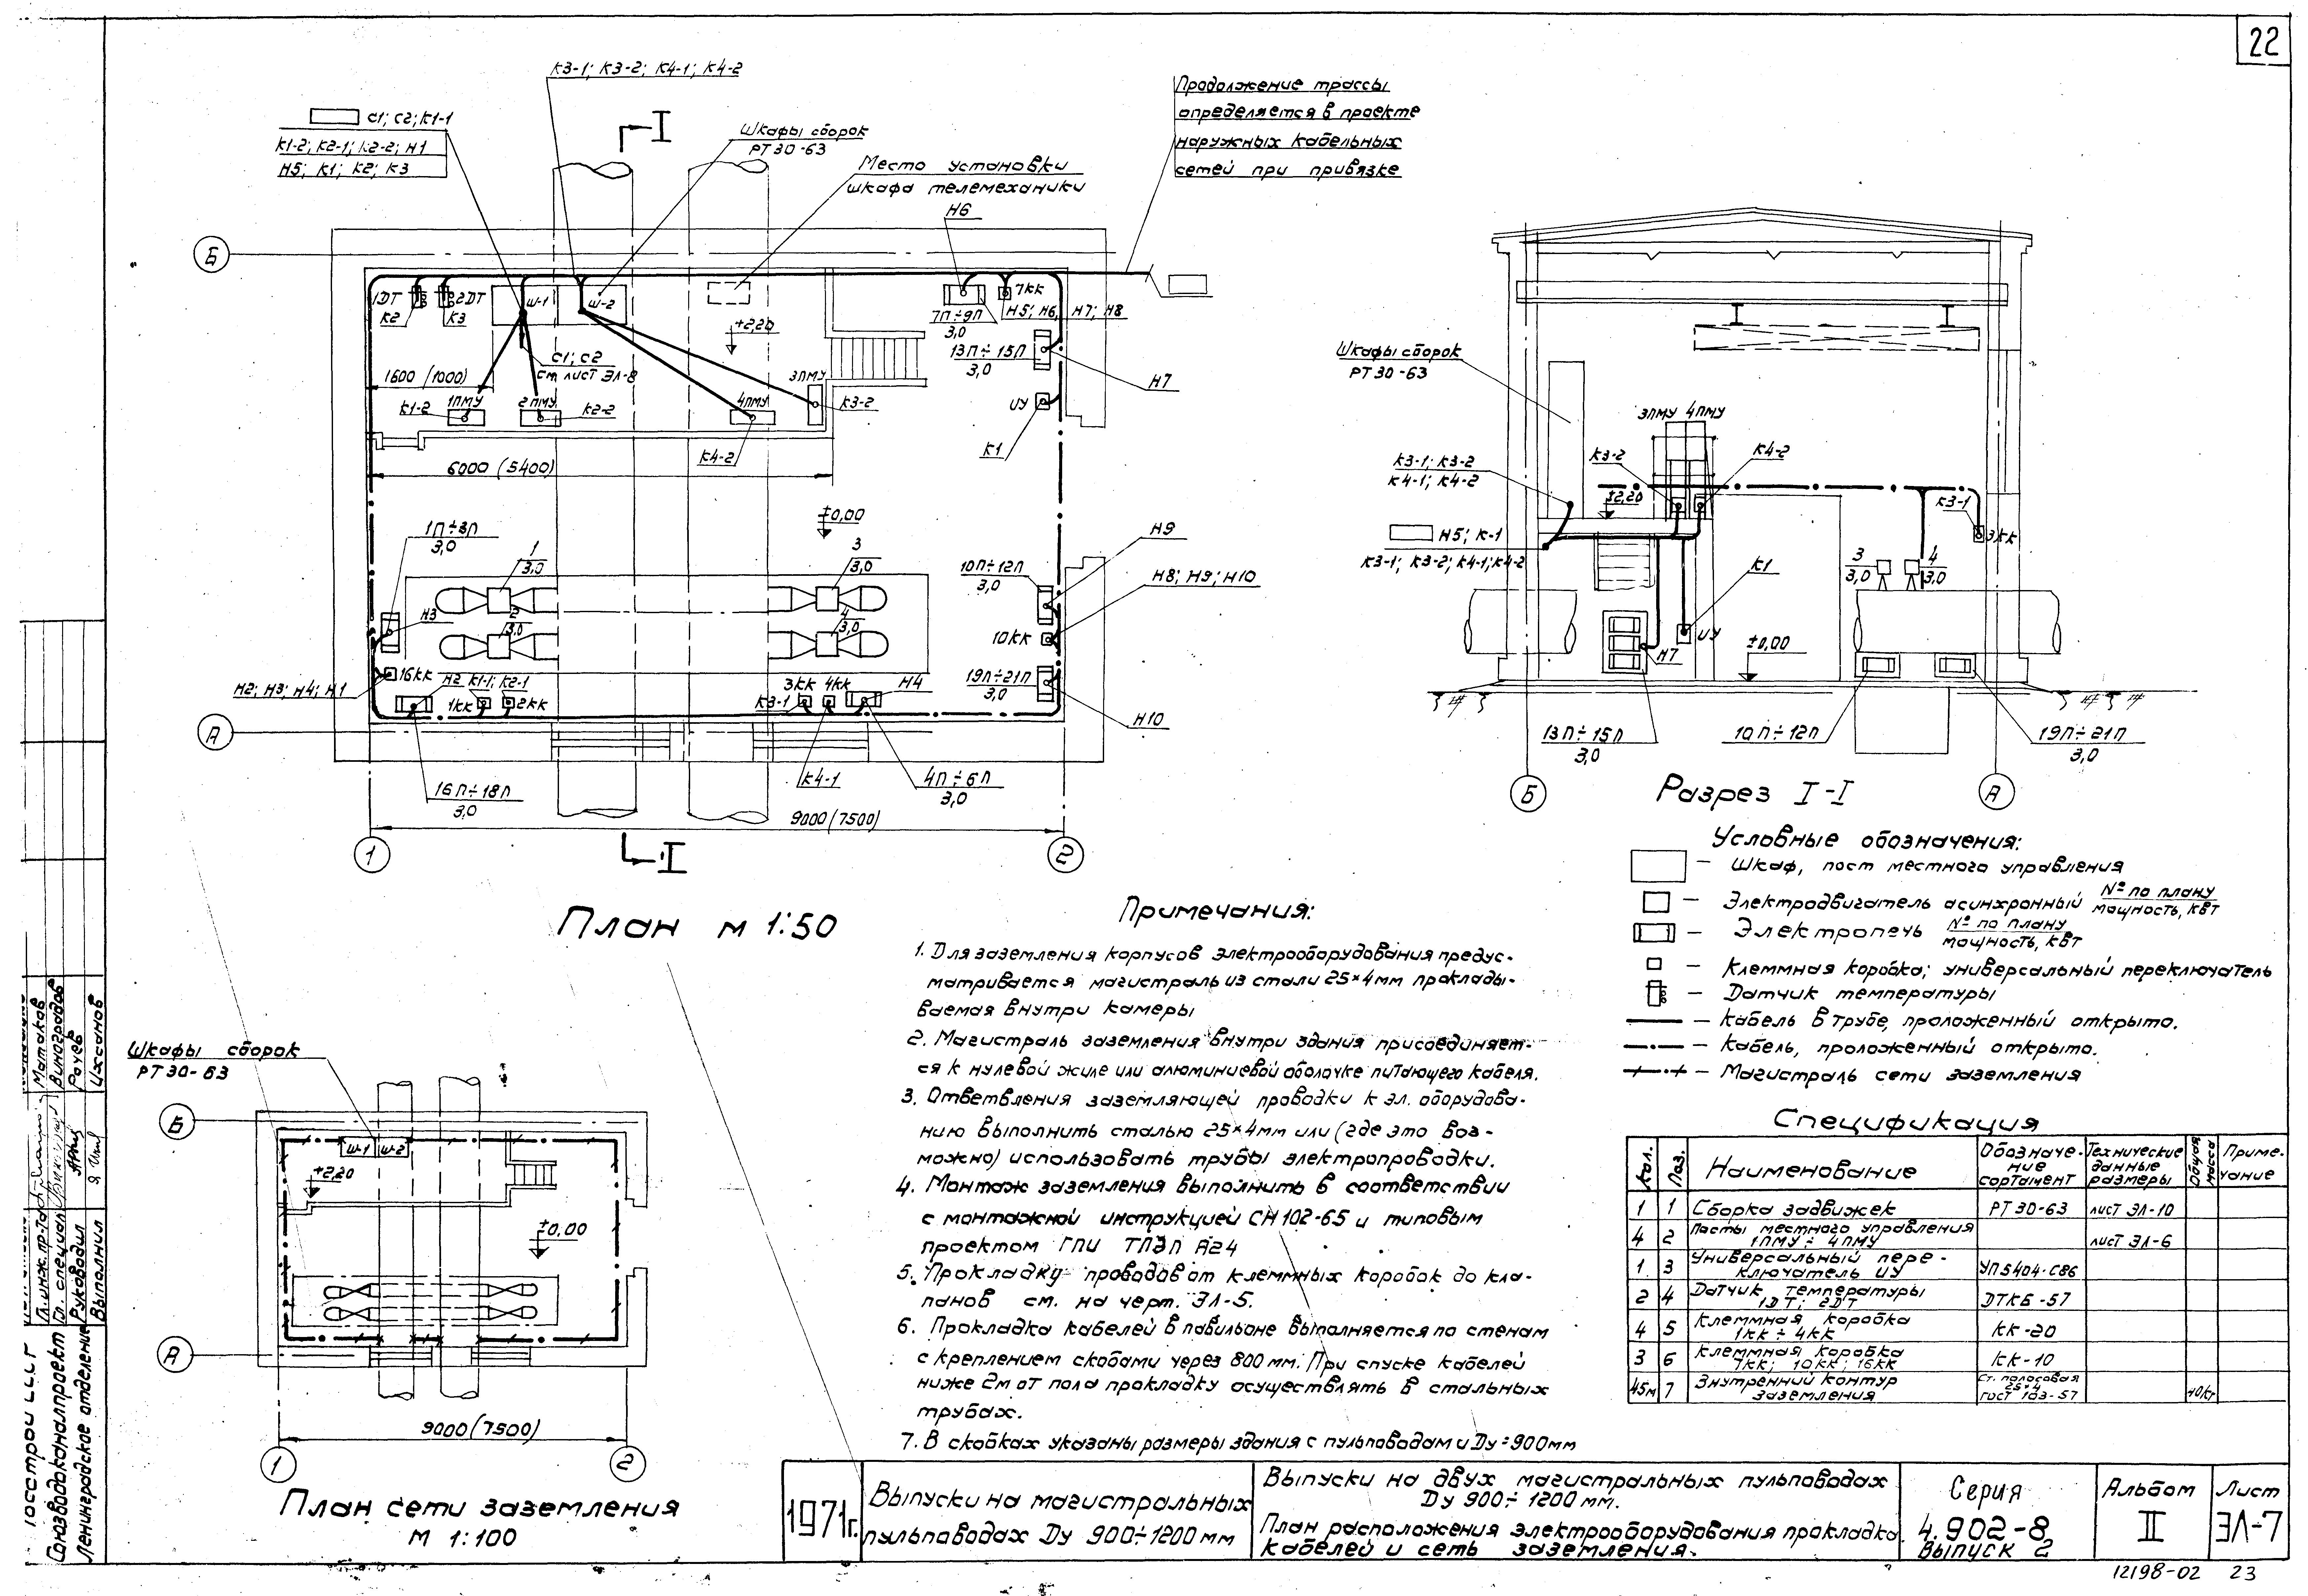 22
К3-1; К3-2; К4-1; К4-2
С1; С2; К1-1
К1-2; К2-1; К2-2; Н1
Н5; К1; К2; К3
I
Шкафы сборок
РТ 30-63
Место установки
шкафа телемеханики
Н6
Продолжение трассы
определяется в проекте
наружных кабельных
сетей при привязке
Б
1ДТ
К2
2ДТ
К3
Ш-1
Ш-2
+2.20
7П÷9П
3,0
7КК
Н5; Н6; Н7; Н8
13П÷15П
3,0
Н7
С1; С2
см. лист ЭЛ-8
1600 (1000)
1ПМУ
К1-2
2ПМУ
К2-2
4ПМУ
3ПМУ
К3-2
К4-2
ИУ
К1
6000 (5400)
1П÷3П
3,0
1
3,0
±0,00
3
3,0
10П÷12П
3,0
Н9
Н8; Н9; Н10
Н3
2
3,0
4
3,0
10КК
16КК
Н2; Н3; Н4; Н1
Н2
К1-1; К2-1
1КК
2КК
3КК
4КК
К3-1
Н4
19П÷21П
3,0
Н10
А
К4-1
4П÷6П
3,0
16П÷18П
3,0
9000 (7500)
1
I
2
План м 1:50
Шкафы сборок
РТ 30-63
3ПМУ 4ПМУ
К3-1; К3-2
К4-1; К4-2
К3-2
К4-2
+2.20
К3-1
3КК
Н5; К-1
К3-1; К3-2; К4-1; К4-2
К1
3
3,0
4
3,0
ИУ
Н7
±0,00
13П÷15П
3,0
10П÷12П
19П÷21П
3,0
Б
А
Разрез I-I
Условные обозначения:
– Шкаф, пост местного управления
– Электродвигатель асинхронный № по плану
мощность, кВт
– Электропечь № по плану
мощность, кВт
– Клеммная коробка; универсальный переключатель
– Датчик температуры
– Кабель в трубе, проложенный открыто.
– Кабель, проложенный открыто.
– Магистраль сети заземления
Примечания:
1. Для заземления корпусов электрооборудования предус-
матривается магистраль из стали 25×4мм проклады-
ваемая внутри камеры
2. Магистраль заземления внутри здания присоединяет-
ся к нулевой жиле или алюминиевой оболочке питающего кабеля.
3. Ответвления заземляющей проводки к эл. оборудова-
нию выполнить сталью 25×4мм или (где это воз-
можно) использовать трубы электропроводки.
4. Монтаж заземления выполнить в соответствии
с монтажной инструкцией СН 102-65 и типовым
проектом ГПИ ТПЭП А24
5. Прокладку проводов от клеммных коробок до кла-
панов см. на черт. ЭЛ-5.
6. Прокладка кабелей в павильоне выполняется по стенам
с креплением скобами через 800 мм. При спуске кабелей
ниже 2м от пола прокладку осуществлять в стальных
трубах.
7. В скобках указаны размеры здания с пульповодами Ду=900мм
Спецификация
Кол. Поз. Наименование Обозначе- Технические Общая Приме-
ние данные масса чание
сортамент размеры
1 1 Сборка задвижек РТ 30-63 лист ЭЛ-10
4 2 Посты местного управления
1ПМУ ÷ 4ПМУ лист ЭЛ-6
1 3 Универсальный пере-
ключатель ИУ УП5404-С86
2 4 Датчик температуры
1ДТ; 2ДТ ДТКБ-57
4 5 Клеммная коробка
1КК ÷ 4КК КК-20
3 6 Клеммная коробка
7КК; 10КК; 16КК КК-10
45м 7 Внутренний контур Ст. полосовая
заземления 25×4
ГОСТ 103-57 40кг
Шкафы сборок
РТ 30-63
Б
Ш-1 Ш-2
+2,20
±0,00
А
9000 (7500)
1
2
План сети заземления
М 1:100
Госстрой СССР
Союзводоканалпроект
Ленинградское отделение
Гл. инж. пр-та
Матаков
Гл. специал.
Виноградов
Руководил
Рогуев
Выполнил
1971г.
Выпуски на магистральных
пульповодах Ду 900÷1200 мм
Выпуски на двух магистральных пульповодах
Ду 900÷1200 мм.
План расположения электрооборудования прокладка
кабелей и сеть заземления.
Серия
4.902-8
Выпуск 2
Альбом
II
Лист
ЭЛ-7
12198-02 23